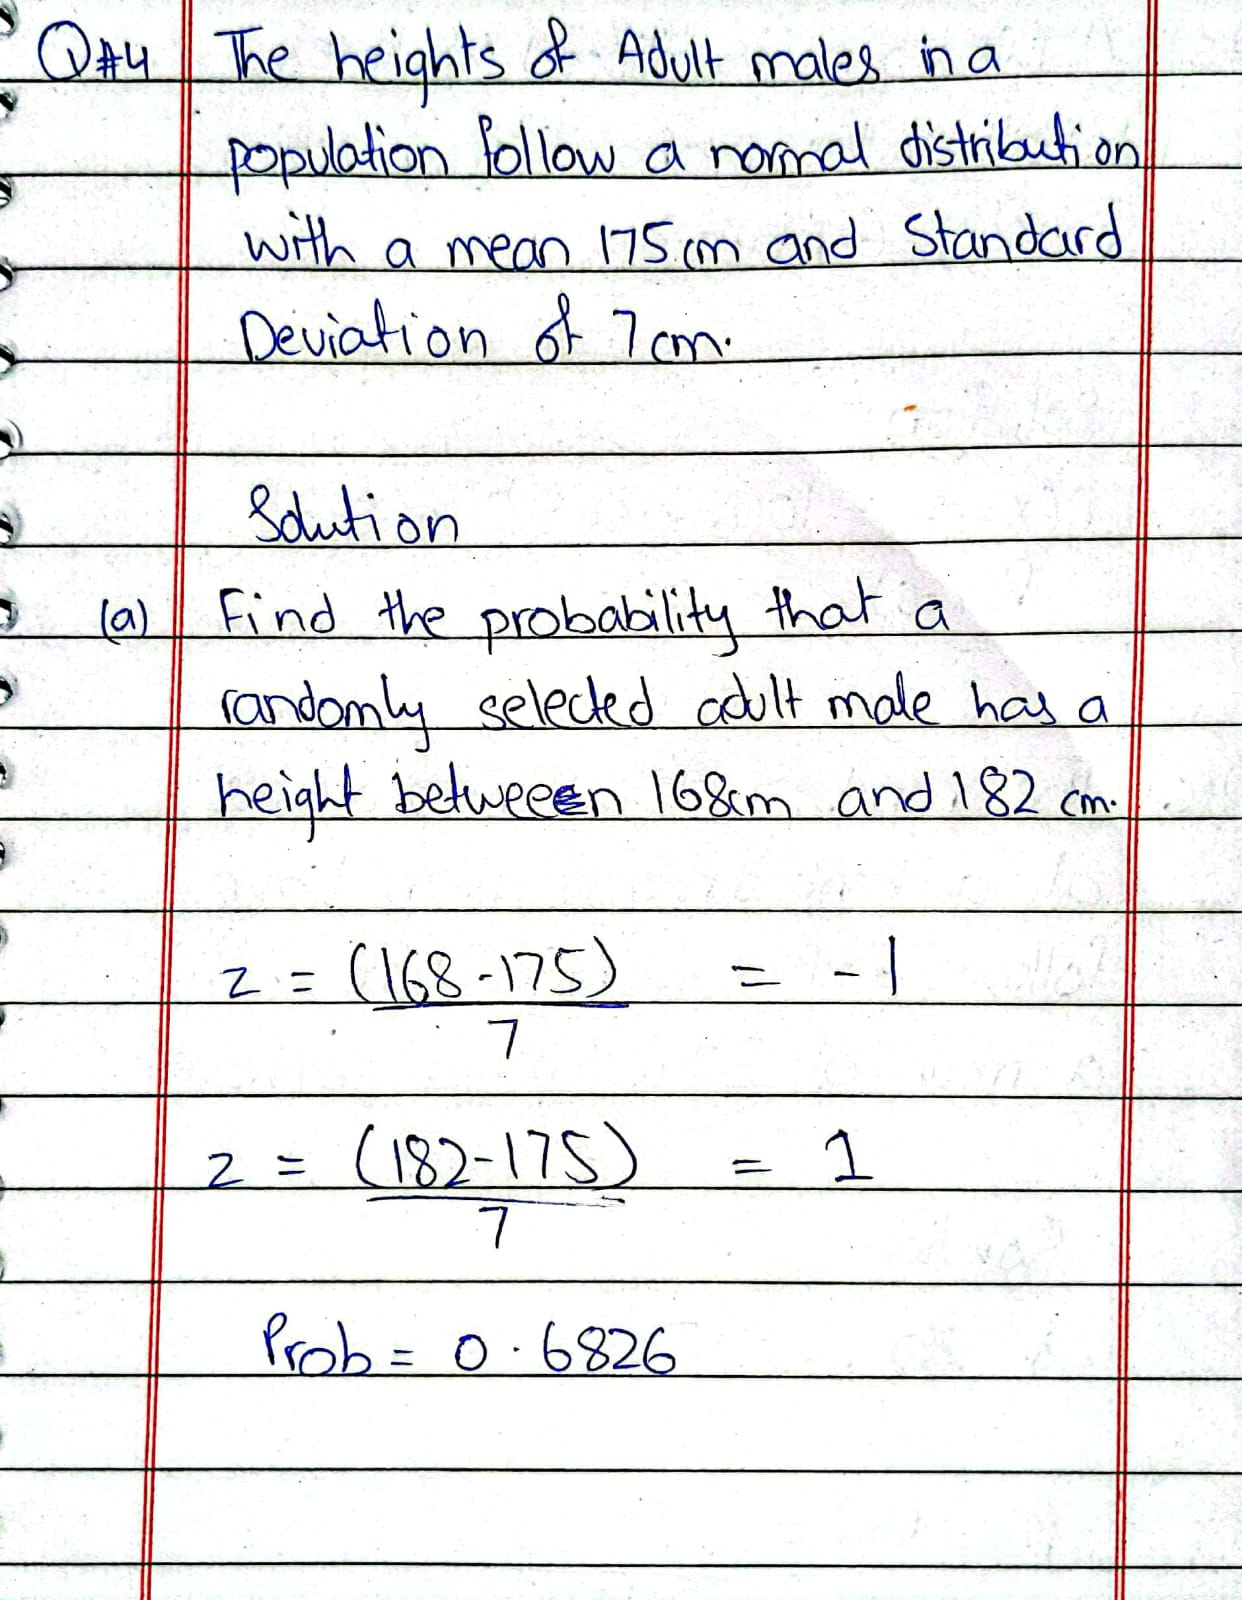 Q#4 The heights of Adult males in a
population follow a normal distribution
with a mean 175cm and Standard
Deviation of 7cm.
Solution
(a) Find the probability that a
randomly selected adult male has a
height betweeen 168cm and 182 cm.
z = (168-175) = -1
7
z = (182-175) = 1
7
Prob = 0.6826